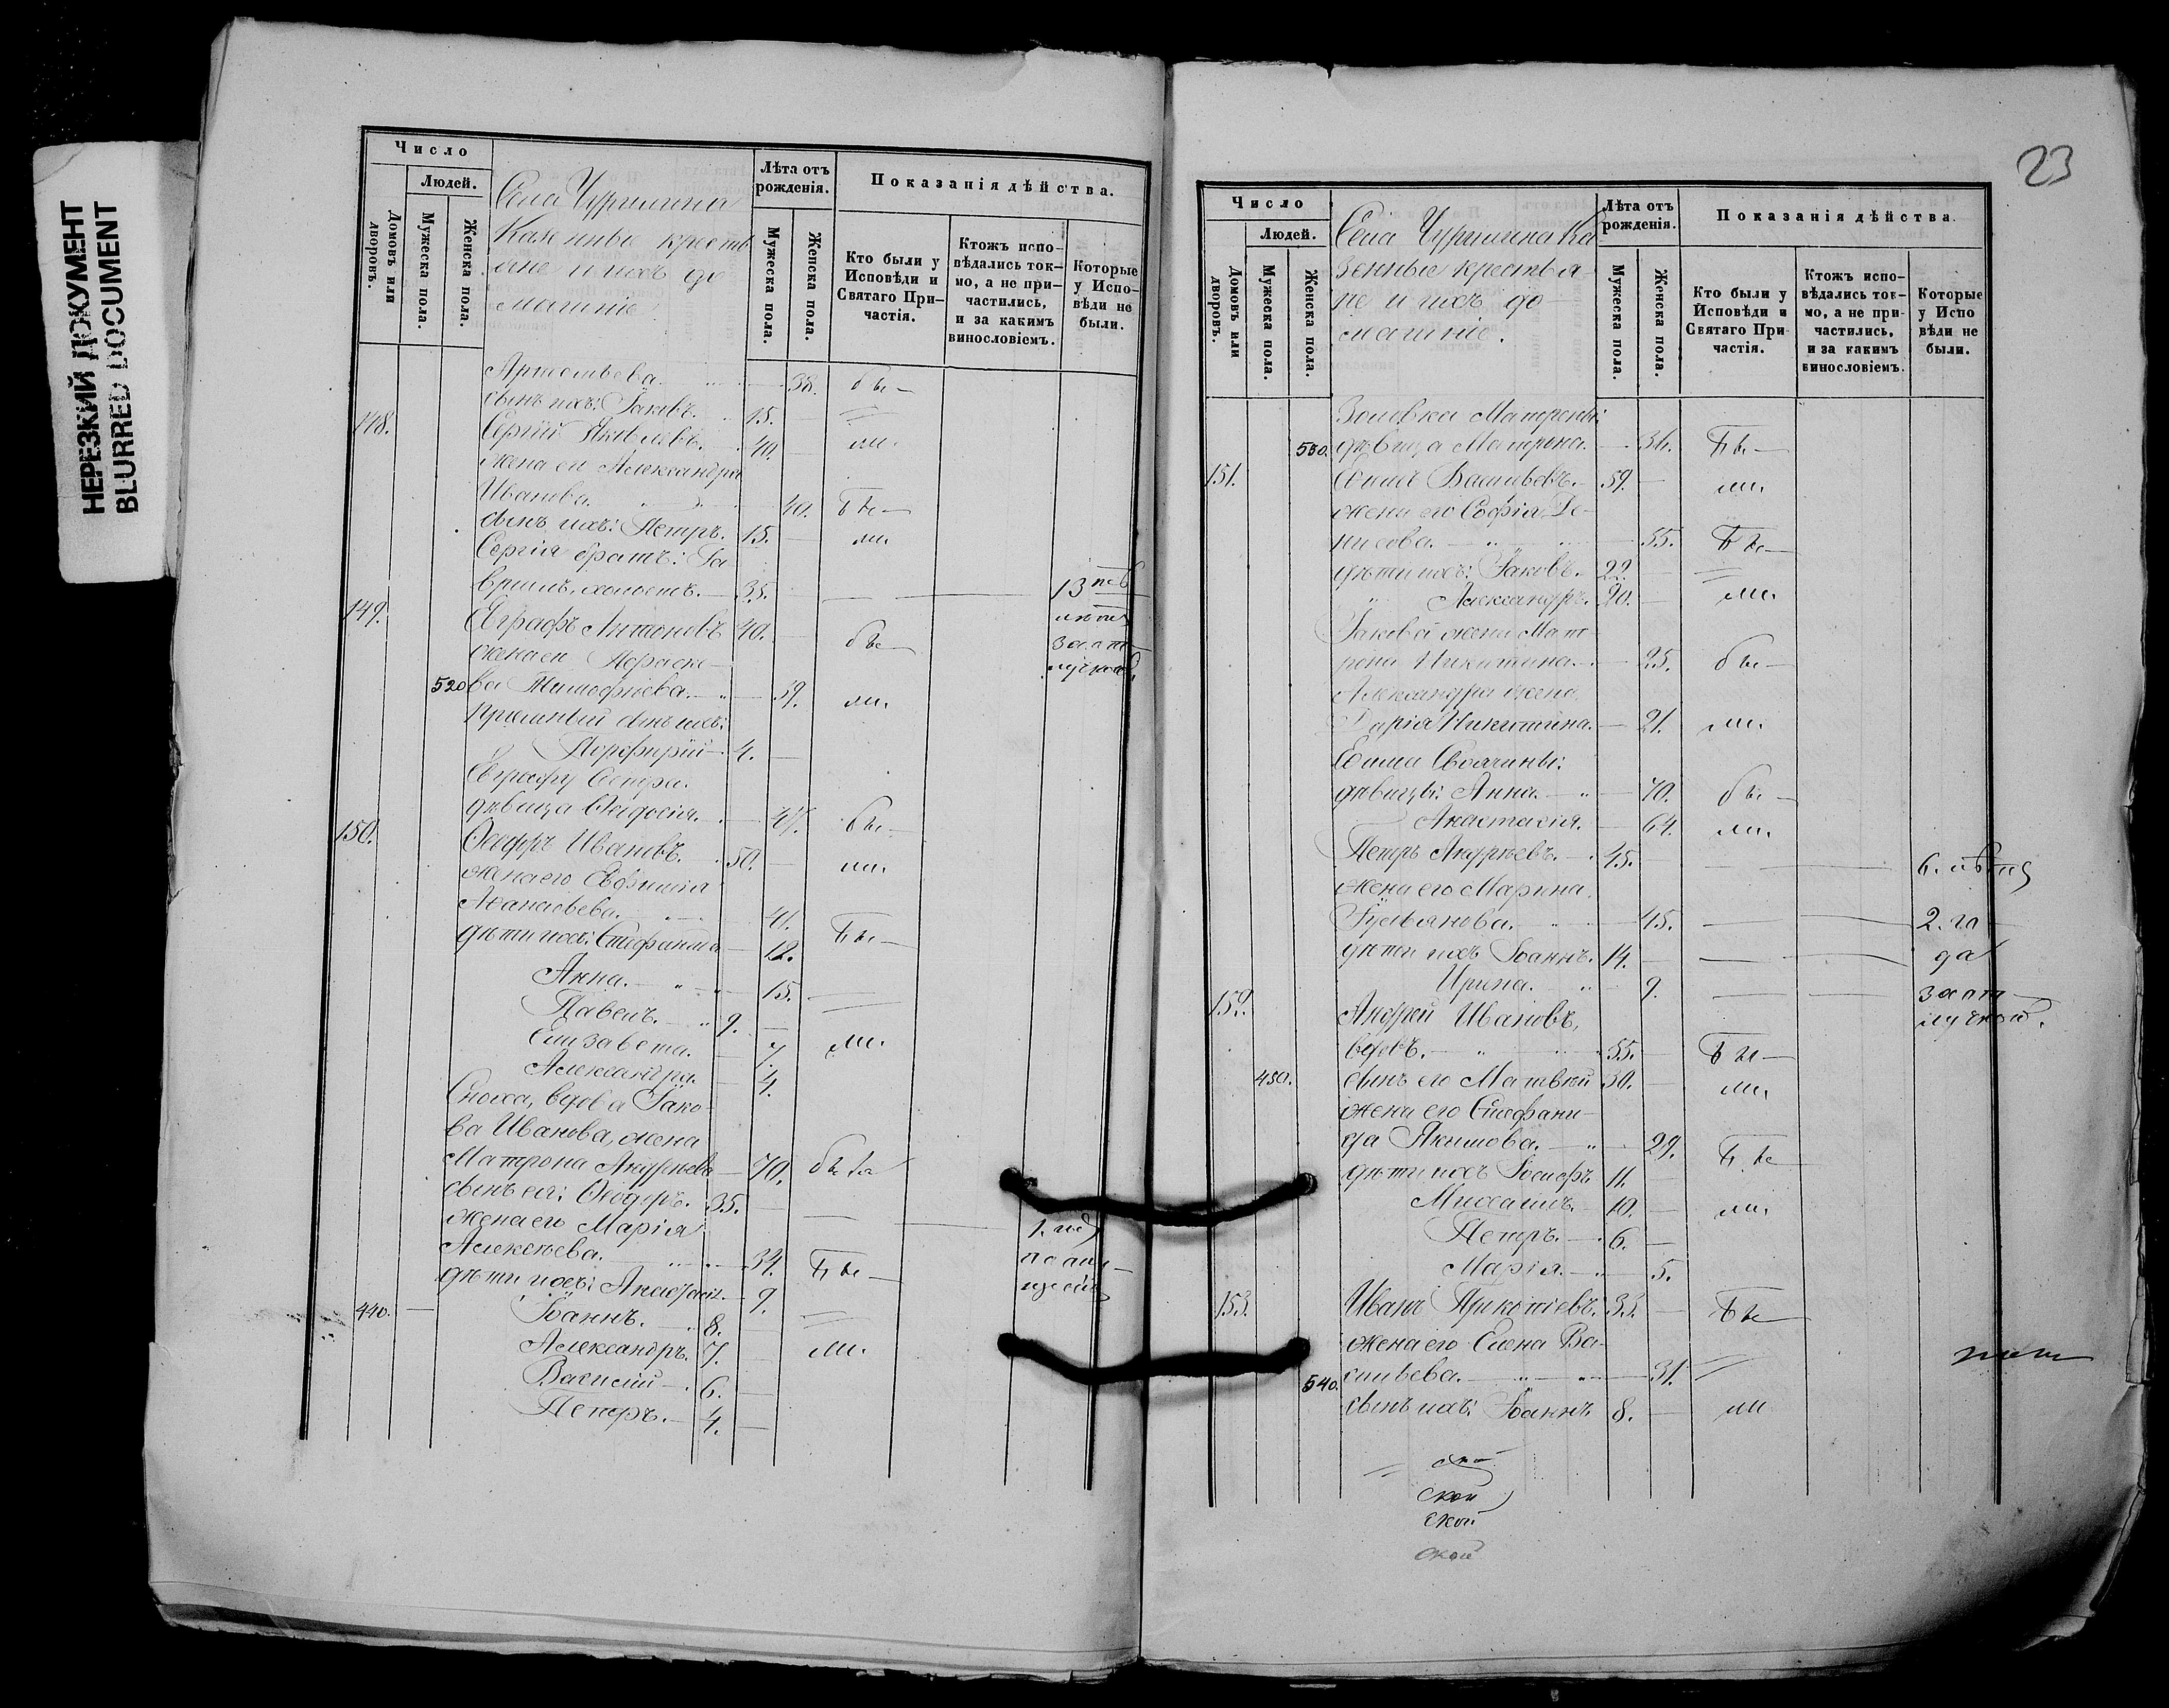 НЕРЕЗКИЙ ДОКУМЕНТ
BLURRED DOCUMENT
Число
Людей.
Домовъ или дворовъ.
Мужеска пола.
Женска пола.
Села Чурилина
Казенные кресть
яне и ихъ до
машніе
Лѣта отъ рожденія.
Мужеска пола.
Женска пола.
Показанія дѣйства.
Кто были у Исповѣди и Святаго При-
частія.
Ктожъ испо-
вѣдались ток-
мо, а не при-
частились,
и за какимъ
винословіемъ.
Которые
у Испо-
вѣди не
были.
38. бы—
сынъ ихъ: Іаковъ. 15.
118. Сергій Яковлевъ. 40. ли.
жена его Александра
Иванова. 40. Бы—
сынъ ихъ: Петръ. 15. ли.
Сергія братъ: Га
вріилъ, холостъ. 35. 13
149. Евграфъ Антоновъ 40. бы—
жена его Параске-
520 ва Тимофеева. 39. ли.
Пріемный сынъ ихъ:
Порфирій 4.
Евграфу сестра
дѣвица Ѳеодосія. 47. бы—
150. Ѳеодоръ Ивановъ. 50. ли.
жена его Евфимія
Аѳанасьева. 41. Бы—
дѣти ихъ: Стефанида 12.
Анна. 15.
Павелъ. 9.
Елизавета. 7. ли.
Александра. 4.
Сноха, вдова Іако
ва Иванова, жена
Матрона Андреева 70. была
сынъ ея: Ѳеодоръ. 35.
жена его Марія
Алексѣева. 34. Бы—
дѣти ихъ: 9.
440. Іоаннъ. 8.
Александръ. 7. ли.
Василій 6.
Петръ. 4.
23
Число
Людей.
Домовъ или дворовъ.
Мужеска пола.
Женска пола.
Села Чурилина Ка
зенные крестья-
не и ихъ до
машніе.
Лѣта отъ рожденія.
Мужеска пола.
Женска пола.
Показанія дѣйства.
Кто были у Исповѣди и Святаго При-
частія.
Ктожъ испо-
вѣдались ток-
мо, а не при-
частились,
и за какимъ
винословіемъ.
Которые
у Испо
вѣди не
были.
Золовка Матроны:
530. дѣвица Матрона. 36. Бы—
151. Васильевъ. 59. ли
жена его Софія Де-
нисова. 55. Бы—
дѣти ихъ: Іаковъ. 22.
Александръ. 20. ли
Іакова жена Мат
рона Никитина. 25. бы—
Александра жена
Дарія Никитина. 21. ли.
дѣвицы: Анна. 70. бы—
Анастасія. 64. ли.
Петръ Андреевъ. 45. 6. лѣтъ
жена его Марина
45. 2. го
дѣти ихъ Іоаннъ. 14. да
Ирина. 9. за от
152. Андрей Ивановъ, лучкой.
вдовъ. 55. Бы—
450. сынъ его Матвей 30. ли
жена его Стефани-
да Якимова. 29. Бы—
дѣти ихъ Іосифъ 11.
Михаилъ. 10. ли
Петръ. 6.
Марія. 5.
153. Иванъ Прокопіевъ. 33. Бы
жена его Елена Ва-
540. сильева. 31.
сынъ ихъ: Іоаннъ 8. ли
ской
ской
ской